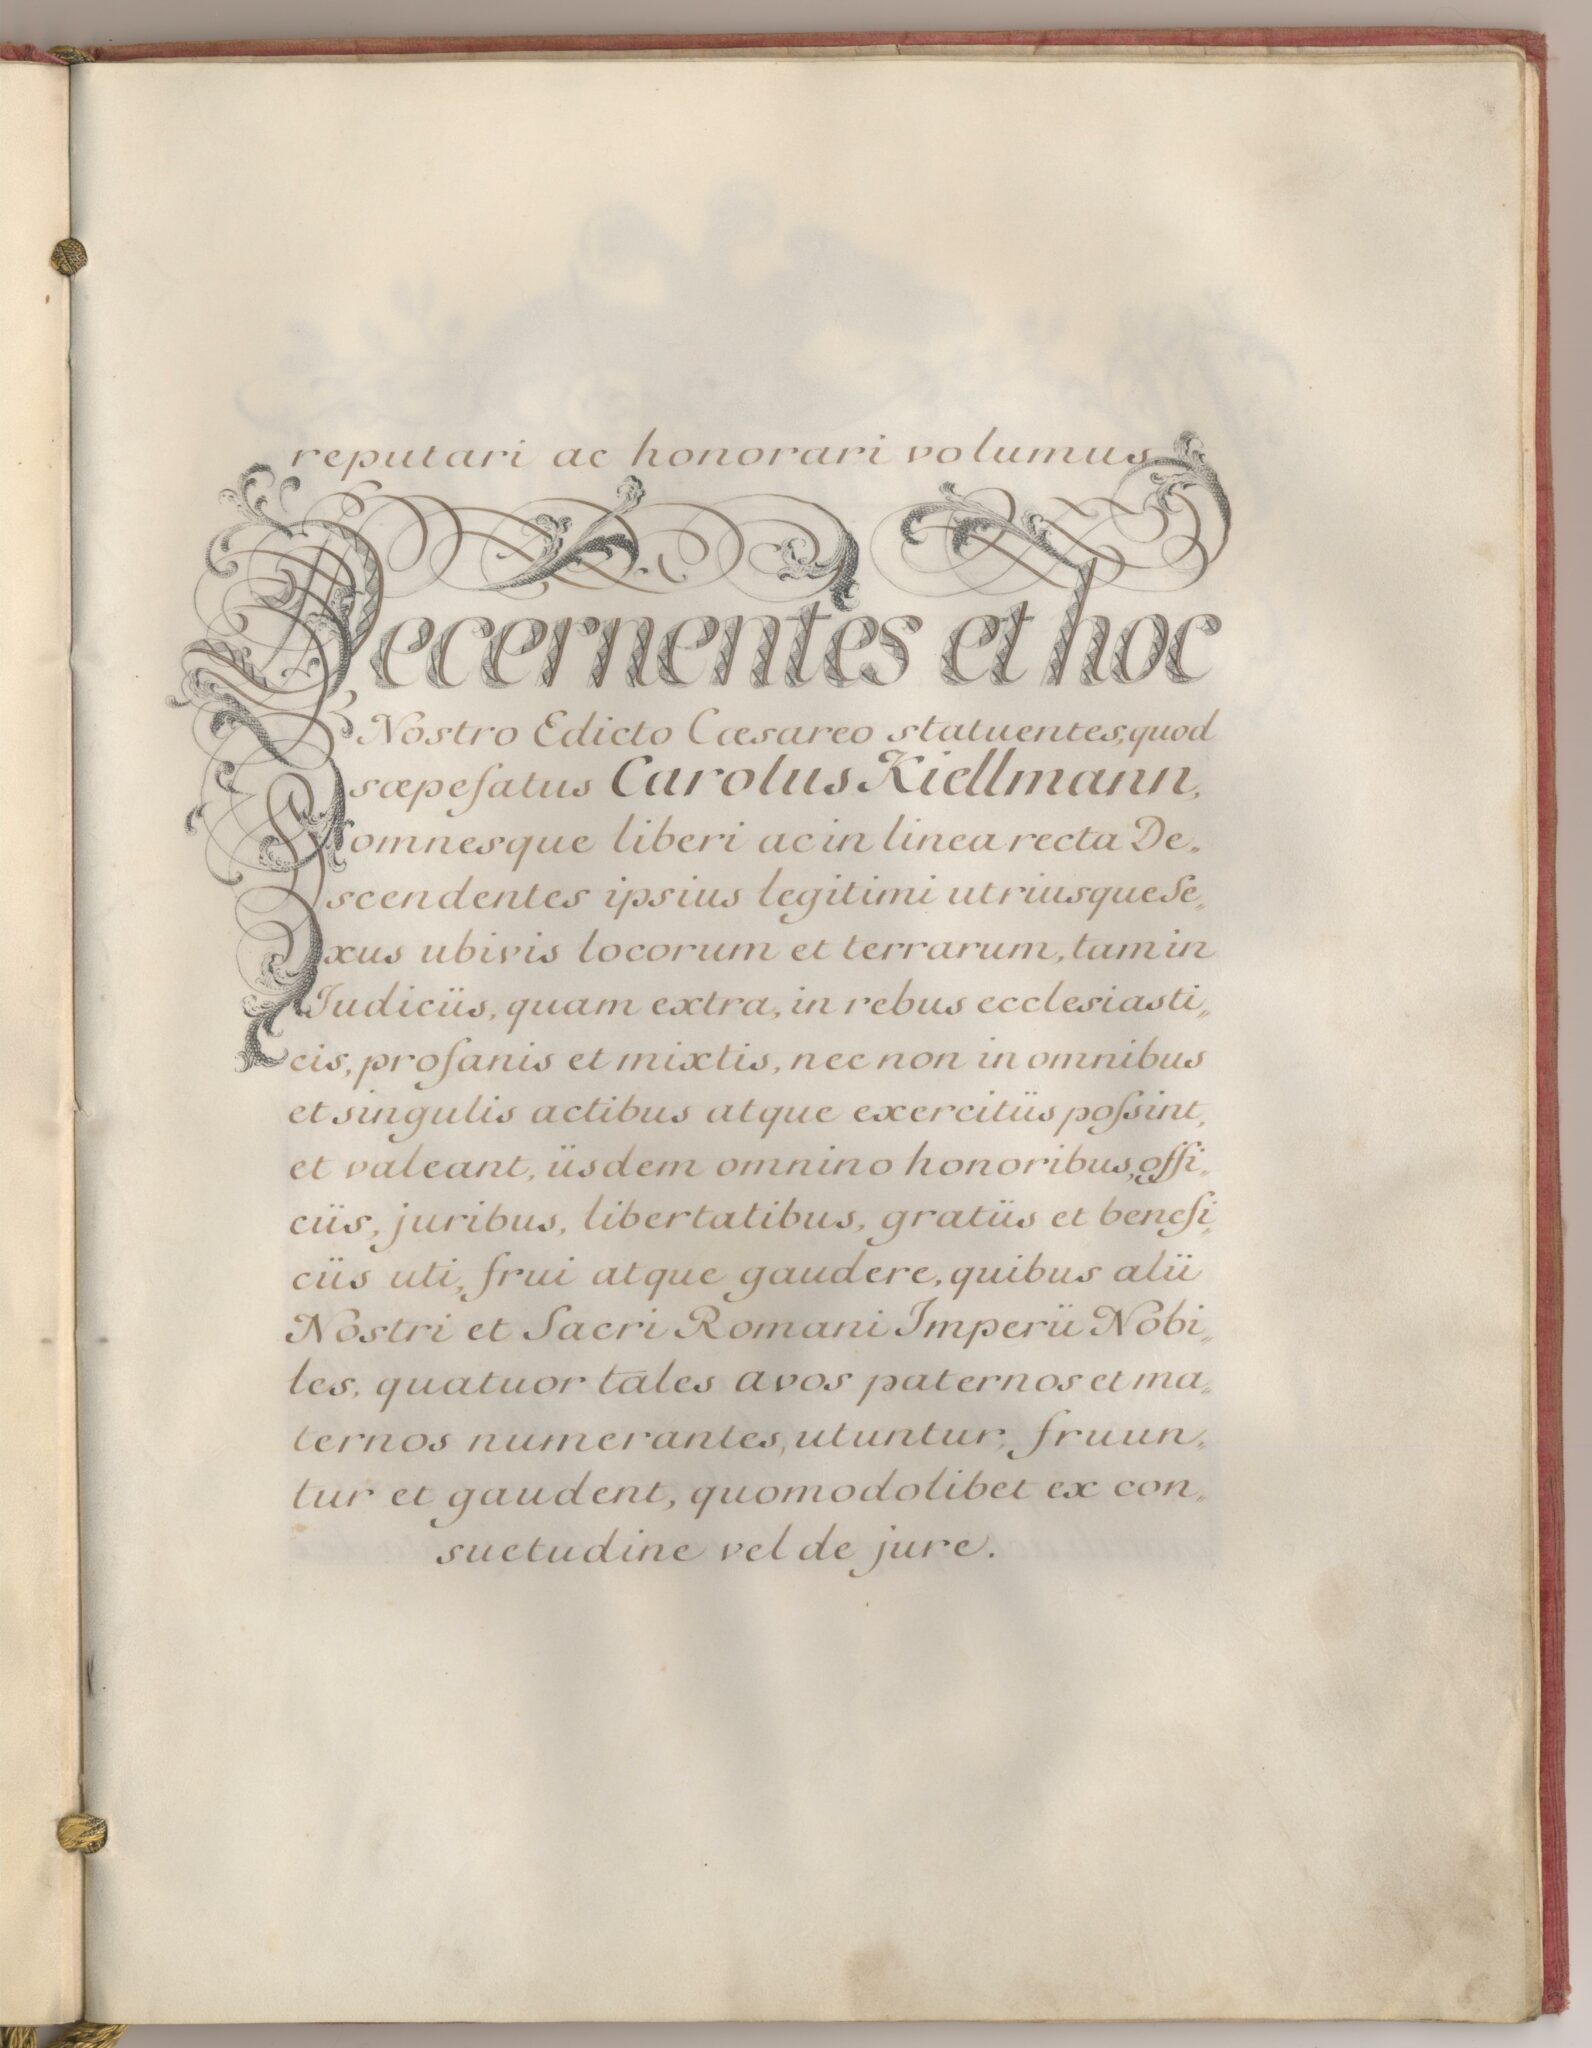 reputari ac honorari volumus
Decernentes et hoc
Nostro Edicto Cæsareo statuentes, quod
sæpefatus Carolus Kiellmann,
omnesque liberi ac in linea recta De„
scendentes ipsius legitimi utriusque Se„
xus ubivis locorum et terrarum, tam in
Judiciis, quam extra, in rebus ecclesiasti„
cis, profanis et mixtis, nec non in omnibus
et singulis actibus atque exercitiis poſsint,
et valeant, iisdem omnino honoribus, offi„
ciis, juribus, libertatibus, gratiis et benefi„
ciis uti, frui atque gaudere, quibus alii
Nostri et Sacri Romani Imperii Nobi„
les, quatuor tales avos paternos et ma„
ternos numerantes, utuntur, fruun„
tur et gaudent, quomodolibet ex con„
suetudine vel de jure.